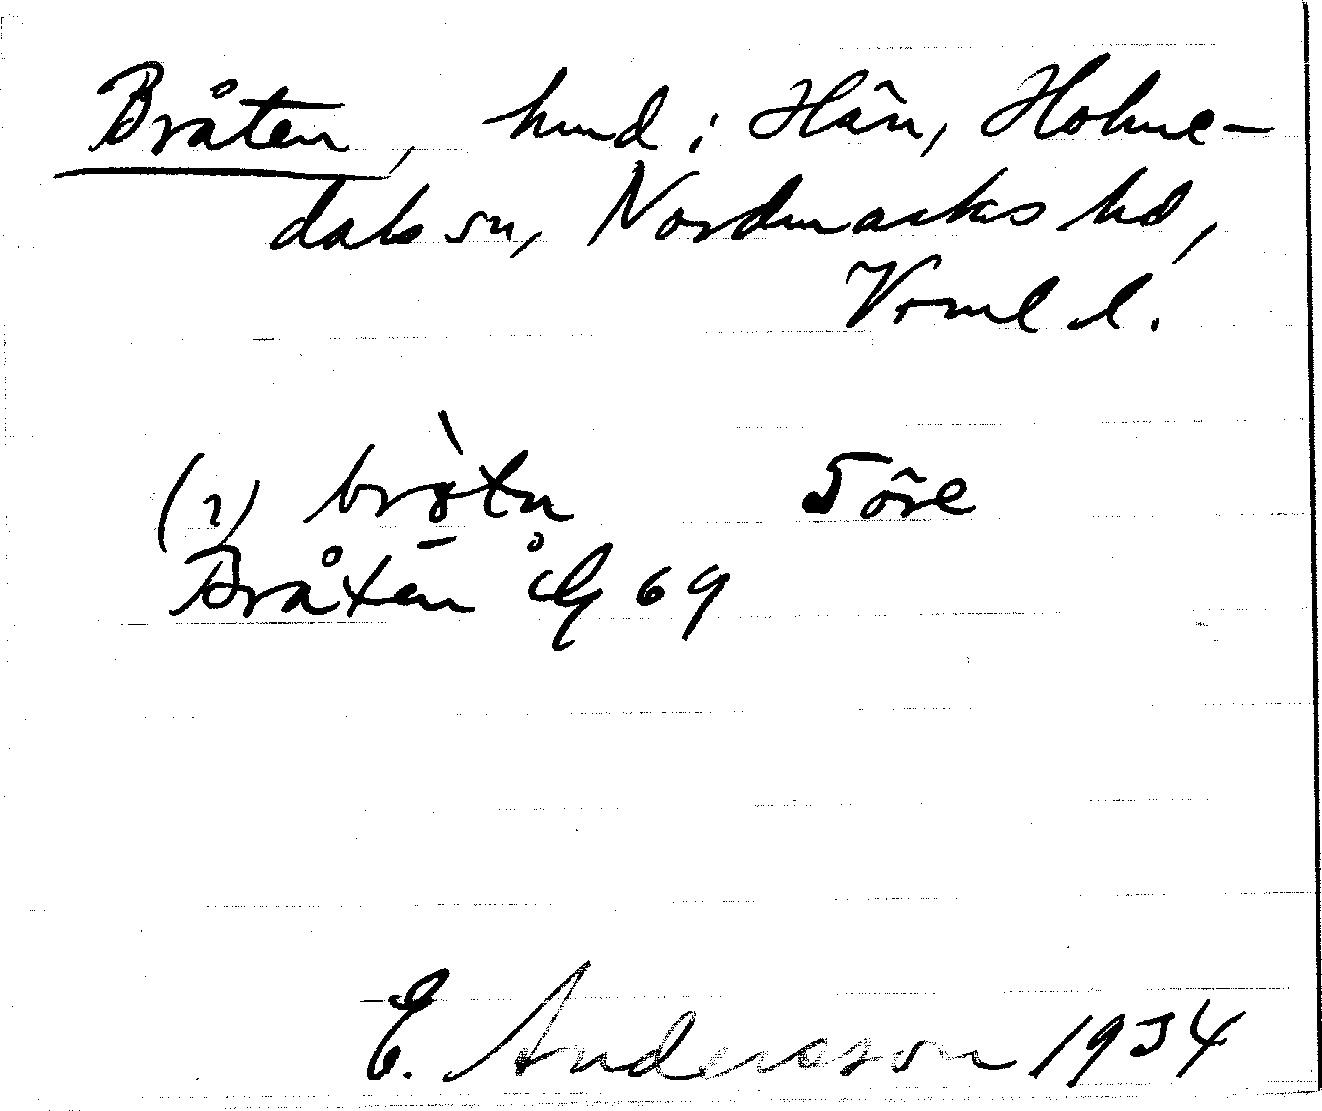 Bråten, hmd i Hån, Holme-
dals sn, Nordmarks hd,
Vrml l.
(i) bròtn
Bråten 69
E. Andersson 1934